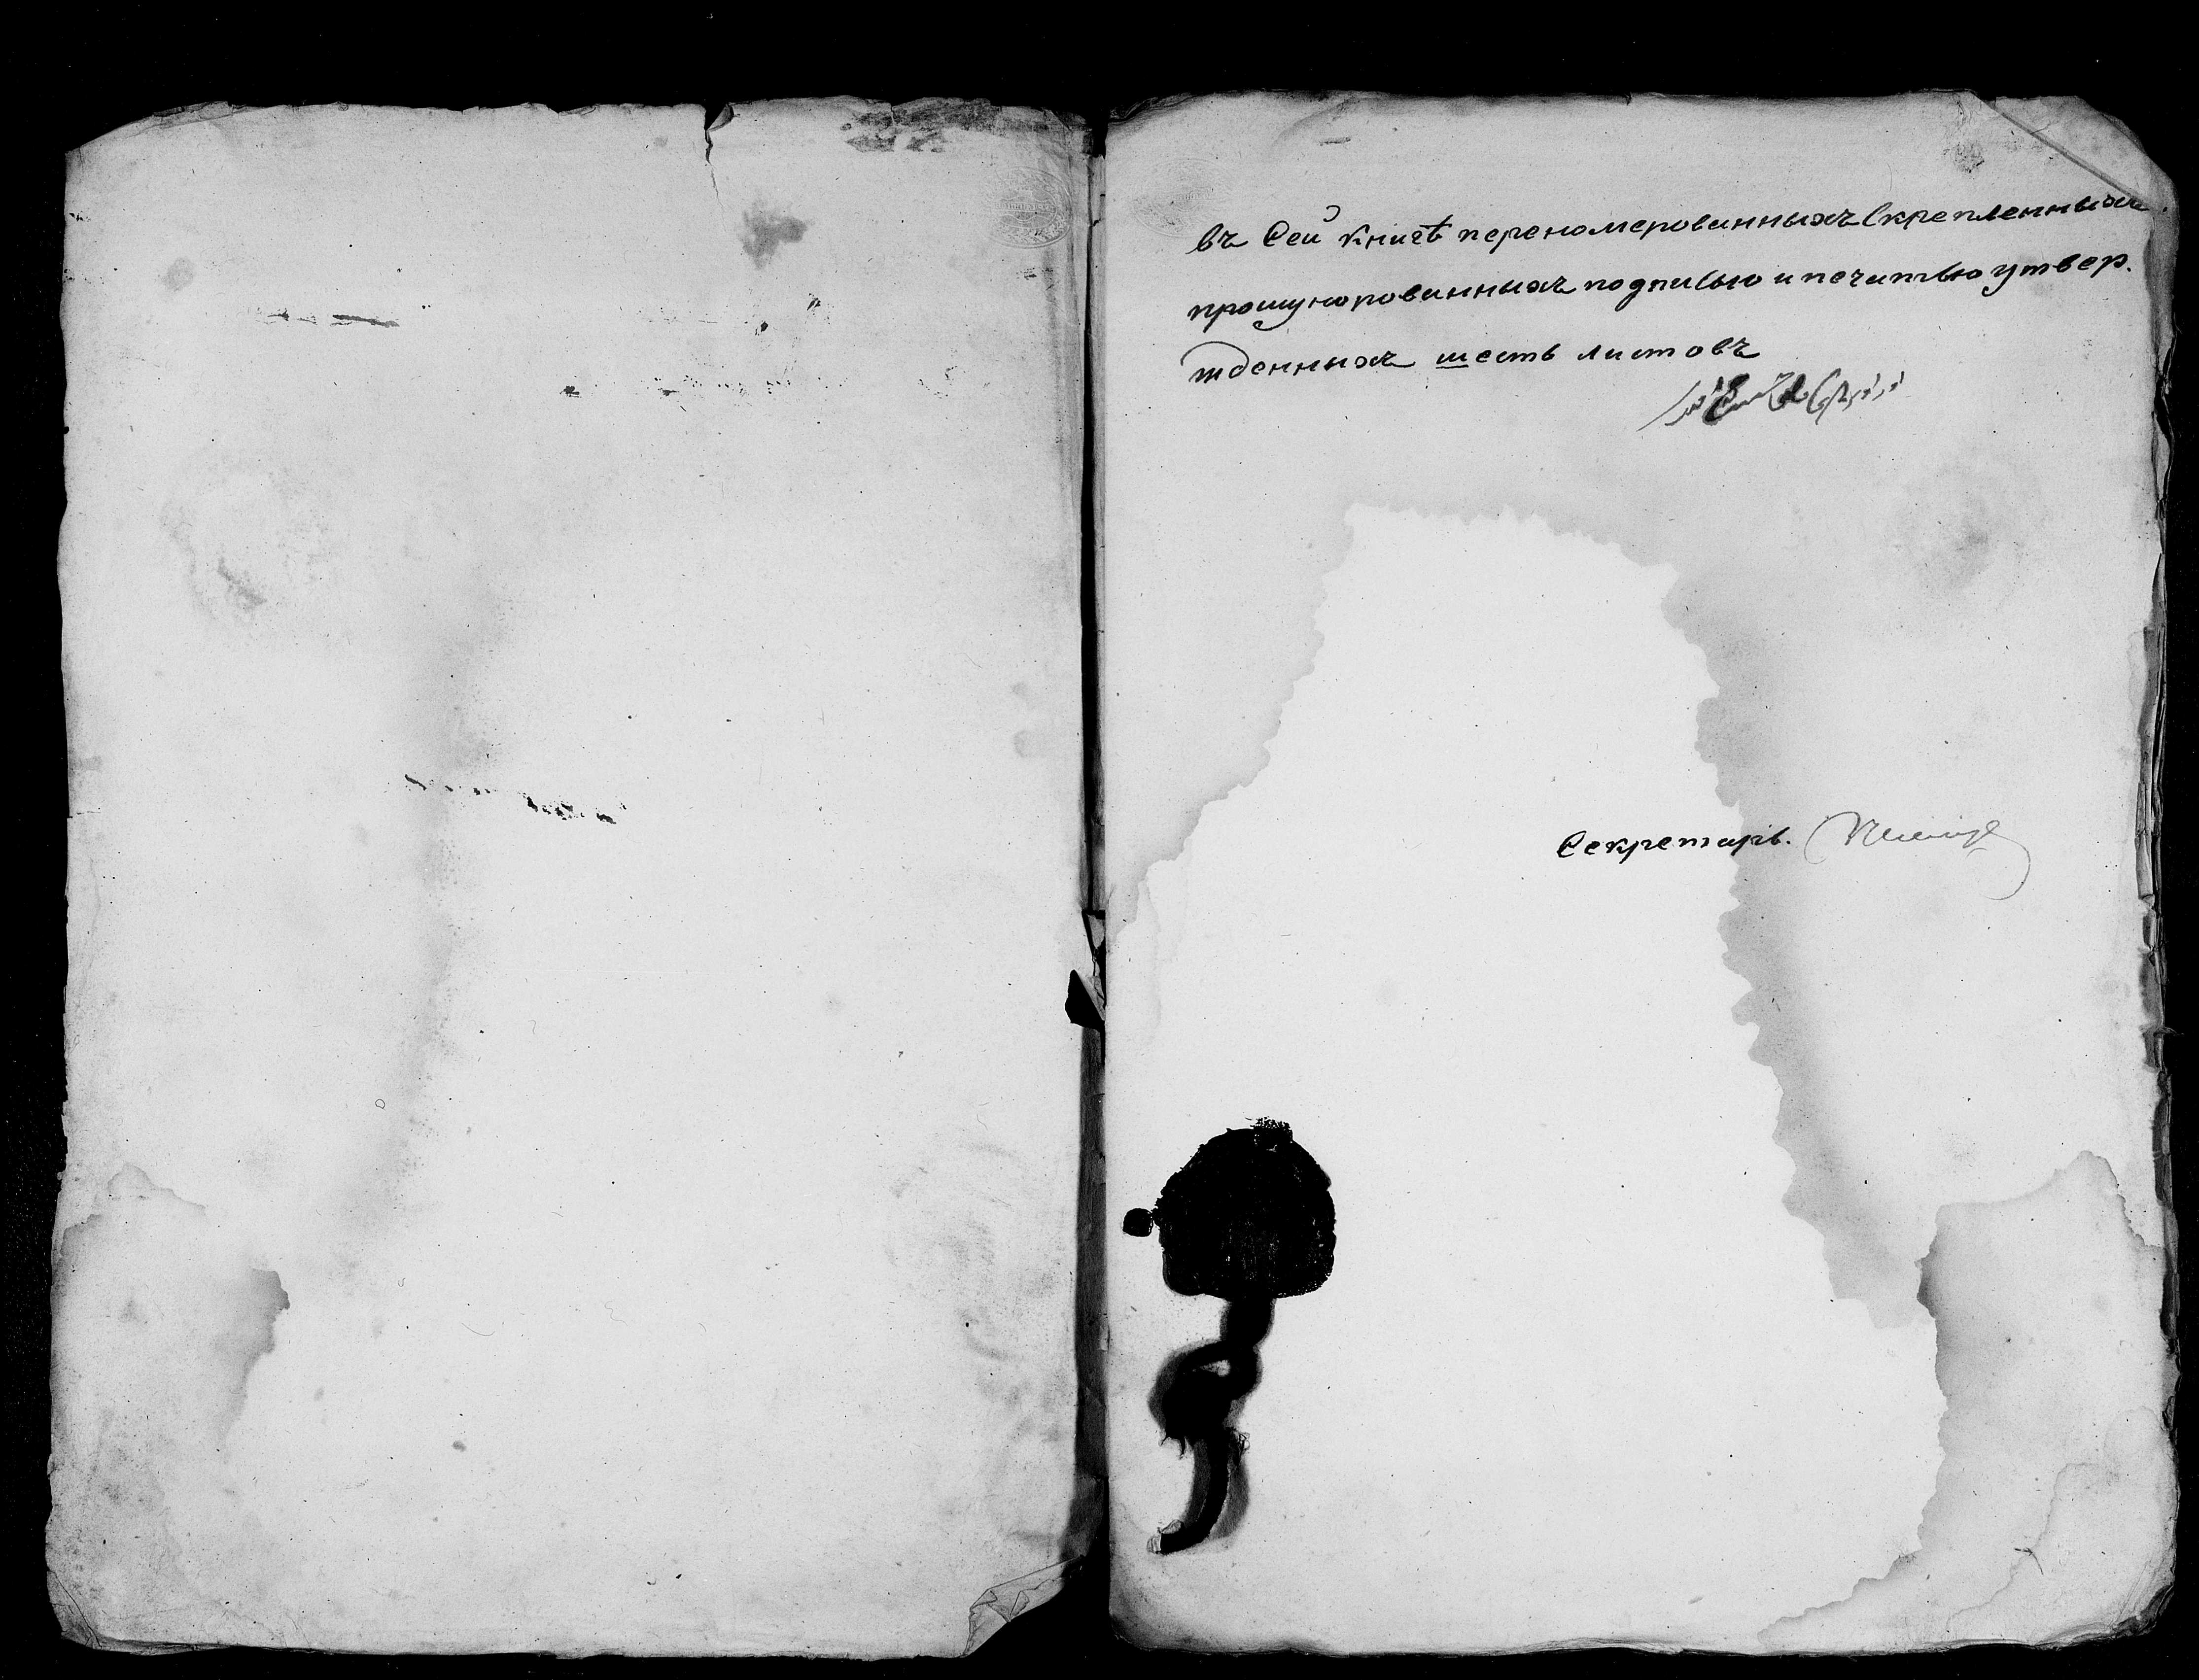 въ Сей книгѣ переномерованныхъ Скрепленныхъ
прошунорованныхъ подписью и печатью утвер.
жденныхъ шесть листовъ
Секретарь.